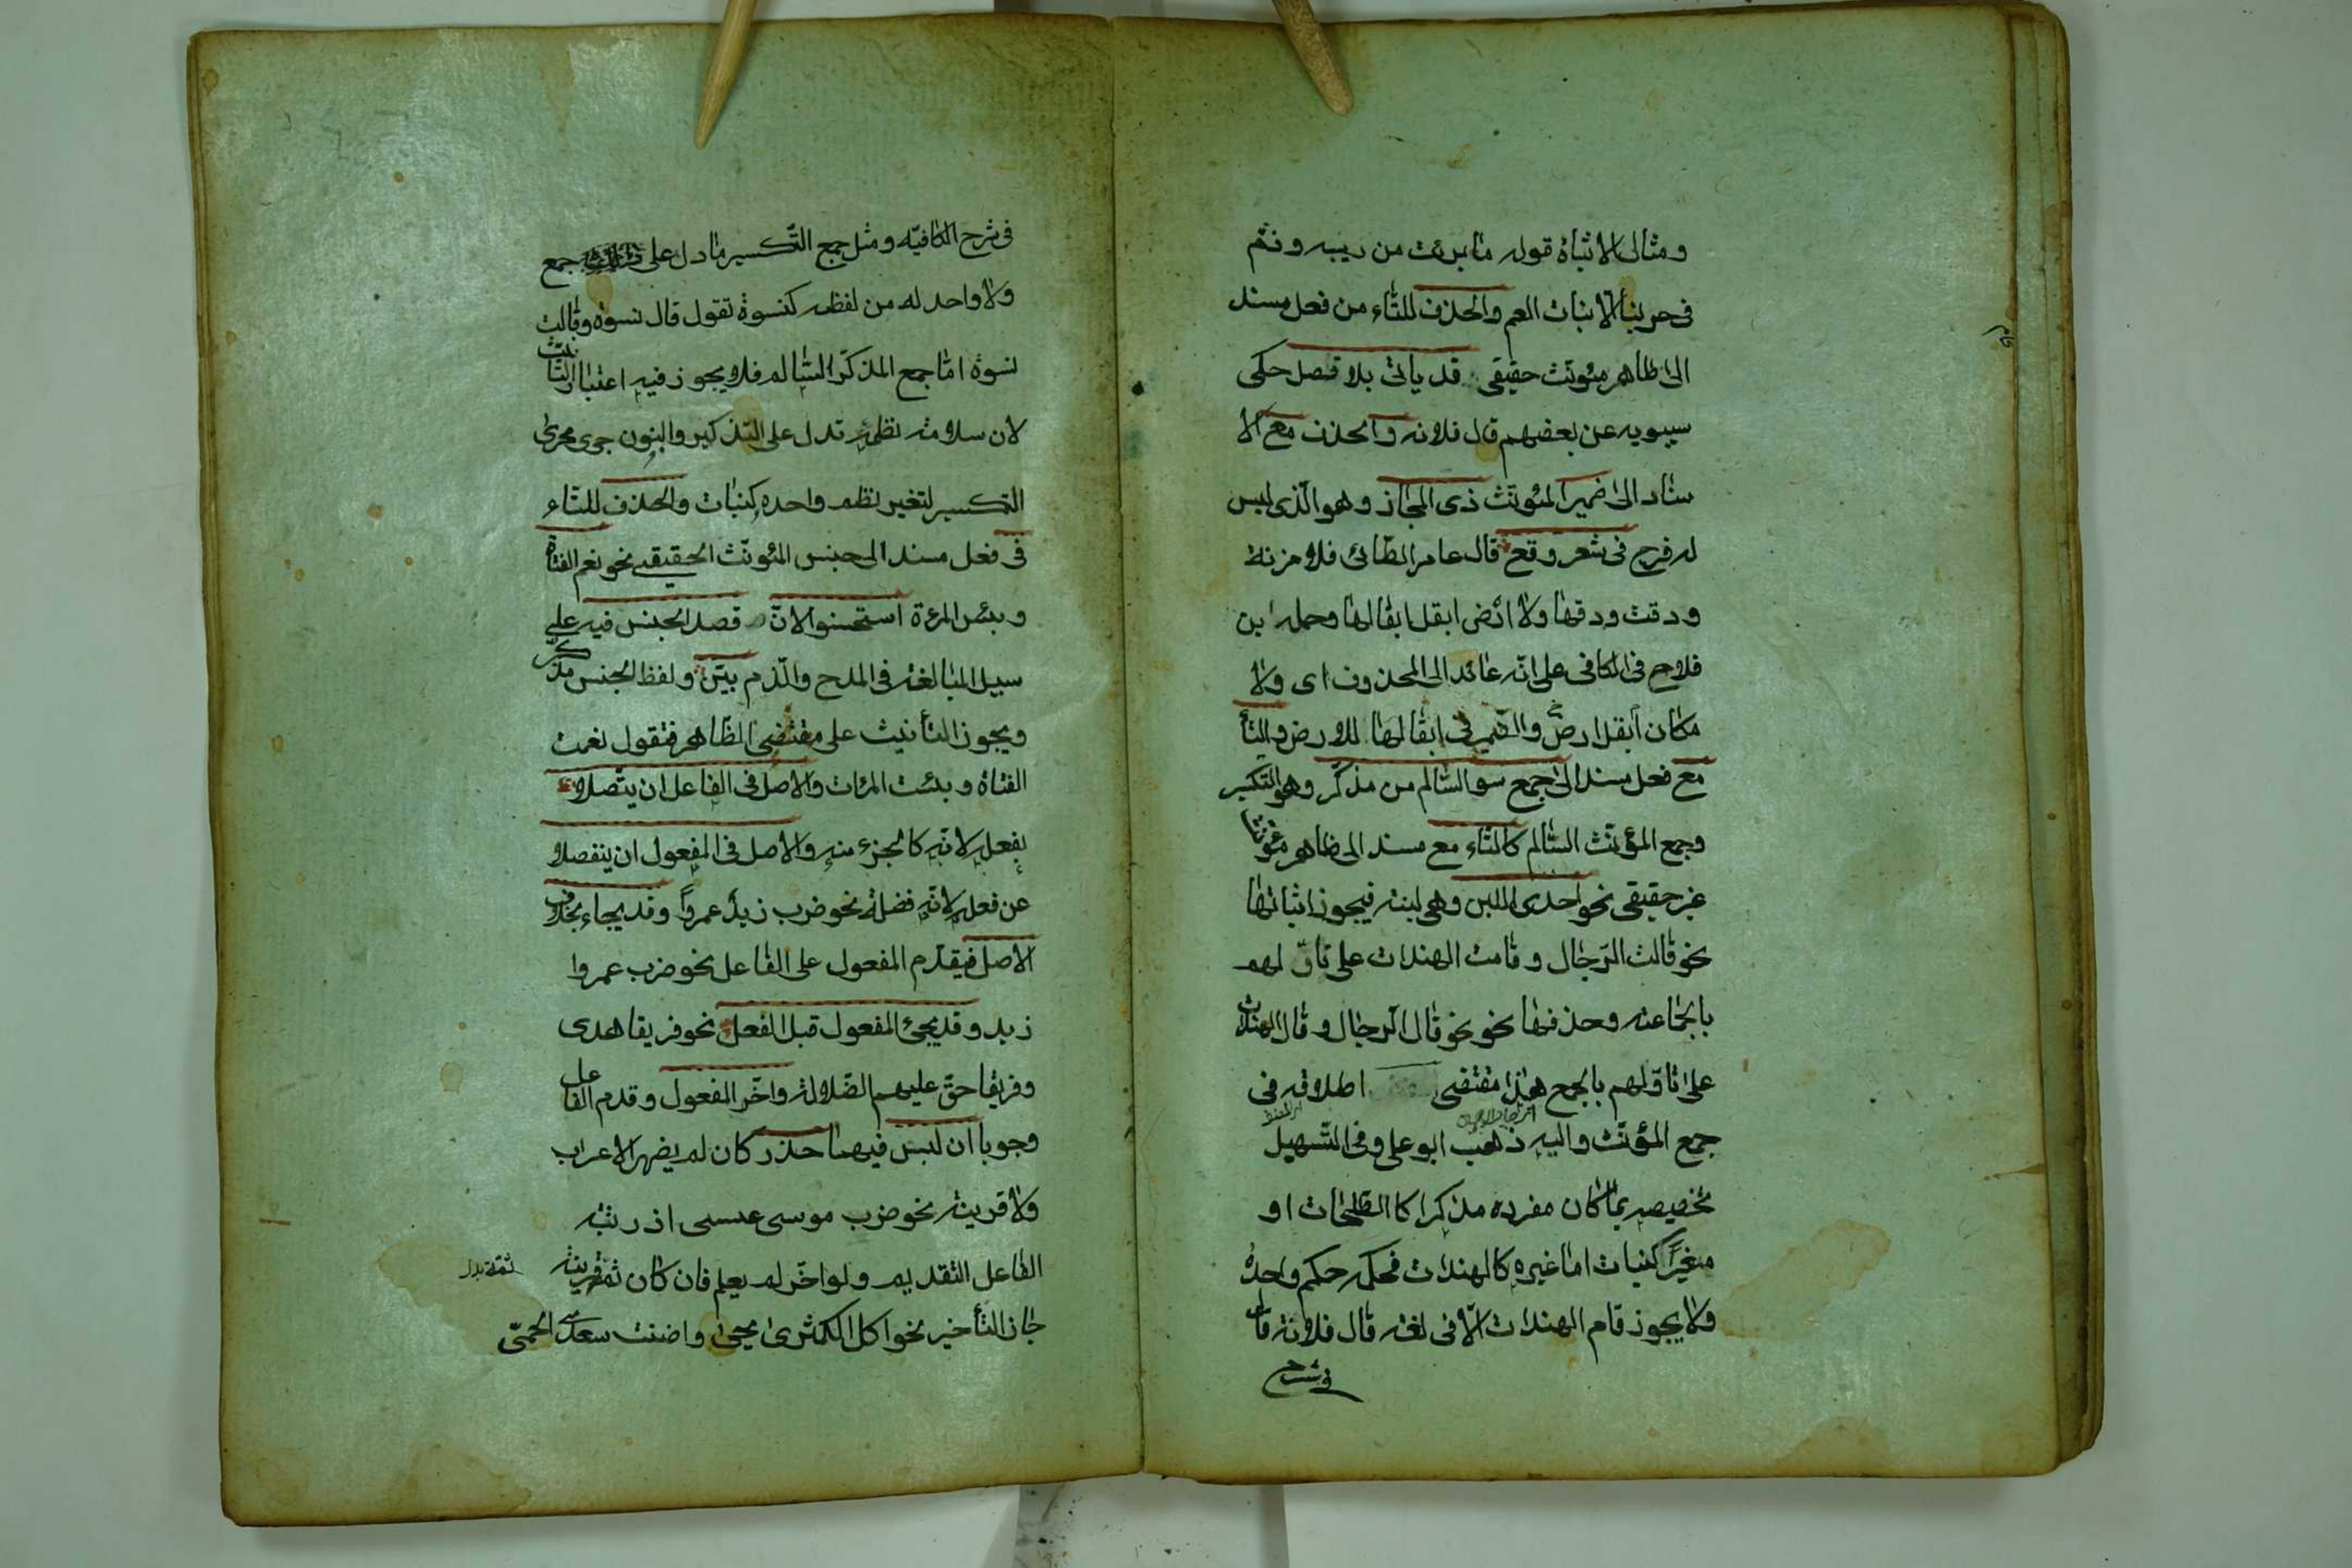 ومثال الاثباة قوله ما برئت من ريبه وذم
فى حربنا الا بنات العم والحذف للتاء من فعل مسند
الى ظاهر مئونث حقيقى قد يأتى بلا فصل حكى
سيبويه عن بعضهم قال فلانه والحذف مع الا
سناد الى ضمير المئونث ذى المجاز وهو الذى ليس
له فرج فى شعر وقع قال عامر الطائى فلا مزنة
ودقت ودقها ولا ارض ابقل ابقالها وحمله ابن
فلاح فى الكافى على انه عائد الى المحذوف اى ولا
مكان أبقل ارض والضمير فى ابقالها للارض والتأ
مع فعل مسند الى جمع سو السالم من مذكر وهو التكسير
وجمع المؤنث السالم كالتاء مع مسند الى ظاهر مئونثا
غير حقيقى نحو احدى اللبن وهى لبنه فيجوز اثباتها
نحو قالت الرجال وقامت الهندات على تاول لهم
بالجماعه وحذفها نحو نحو قال الرجال وقال الهندات
على تاولهم بالجمع هذا مقتضى اطلاقه فى
جمع المؤنث واليه ذهب ابو على وفى التسهيل
تخصيصه بما كان مفرده مذكرا كا الطلحات او
مغيرًا كبنات اما غيره كالهندات فحكمه حكم واحده
ولا يجوز قام الهندات الا فى لغه قال فلانة قال
فى شرح
فى شرح الكافيه ومثل جمع التكسير ما دل على جمع
ولا واحد له من لفظه كنسوة تقول قال نسوة وقالت
نسوة اما جمع المذكر السالم فلا يجوز فيه اعتبار التانيث
لان سلامة نظمه تدل على التذكير والبنون جرى مجرى
التكسير لتغير نظم واحده كبنات والحذف للتاء
فى فعل مسند الى جنس المئونث الحقيقى نحو نعم الفتاة
وبئس المرءة استحسنوا لان قصد الجنس فيه على
سبيل المبالغه فى المدح والذم بيّن ولفظ الجنس مذكر
ويجوز التأنيث على مقتضى الظاهر فتقول نعمت
الفتاة وبئست المرئات والاصل فى الفاعل ان يتصلا
بفعله لانه كالجزء منه والاصل فى المفعول ان ينفصلا
عن فعله لانه فضلة نحو ضرب زيدٌ عمرواً وقد يجاء بخلاف
الاصل فيقدم المفعول على الفاعل نحو ضرب عمروا
زيد وقد يجئ المفعول قبل الفعل نحو فريقا هدى
وفريقا حقّ عليهم الضلالة واخّر المفعول وقدم الفاعل
وجوبا ان لبس فيهما حذر كان لم يضهر الاعراب
ولا قرينة نحو ضرب موسى عيسى اذ رتبه
الفاعل التقديم ولو اخّر لم يعلم فان كان ثمة قرينة
جاز التأخير نحو اكل الكمثرى يحيى واضنت سعدى الحمّى